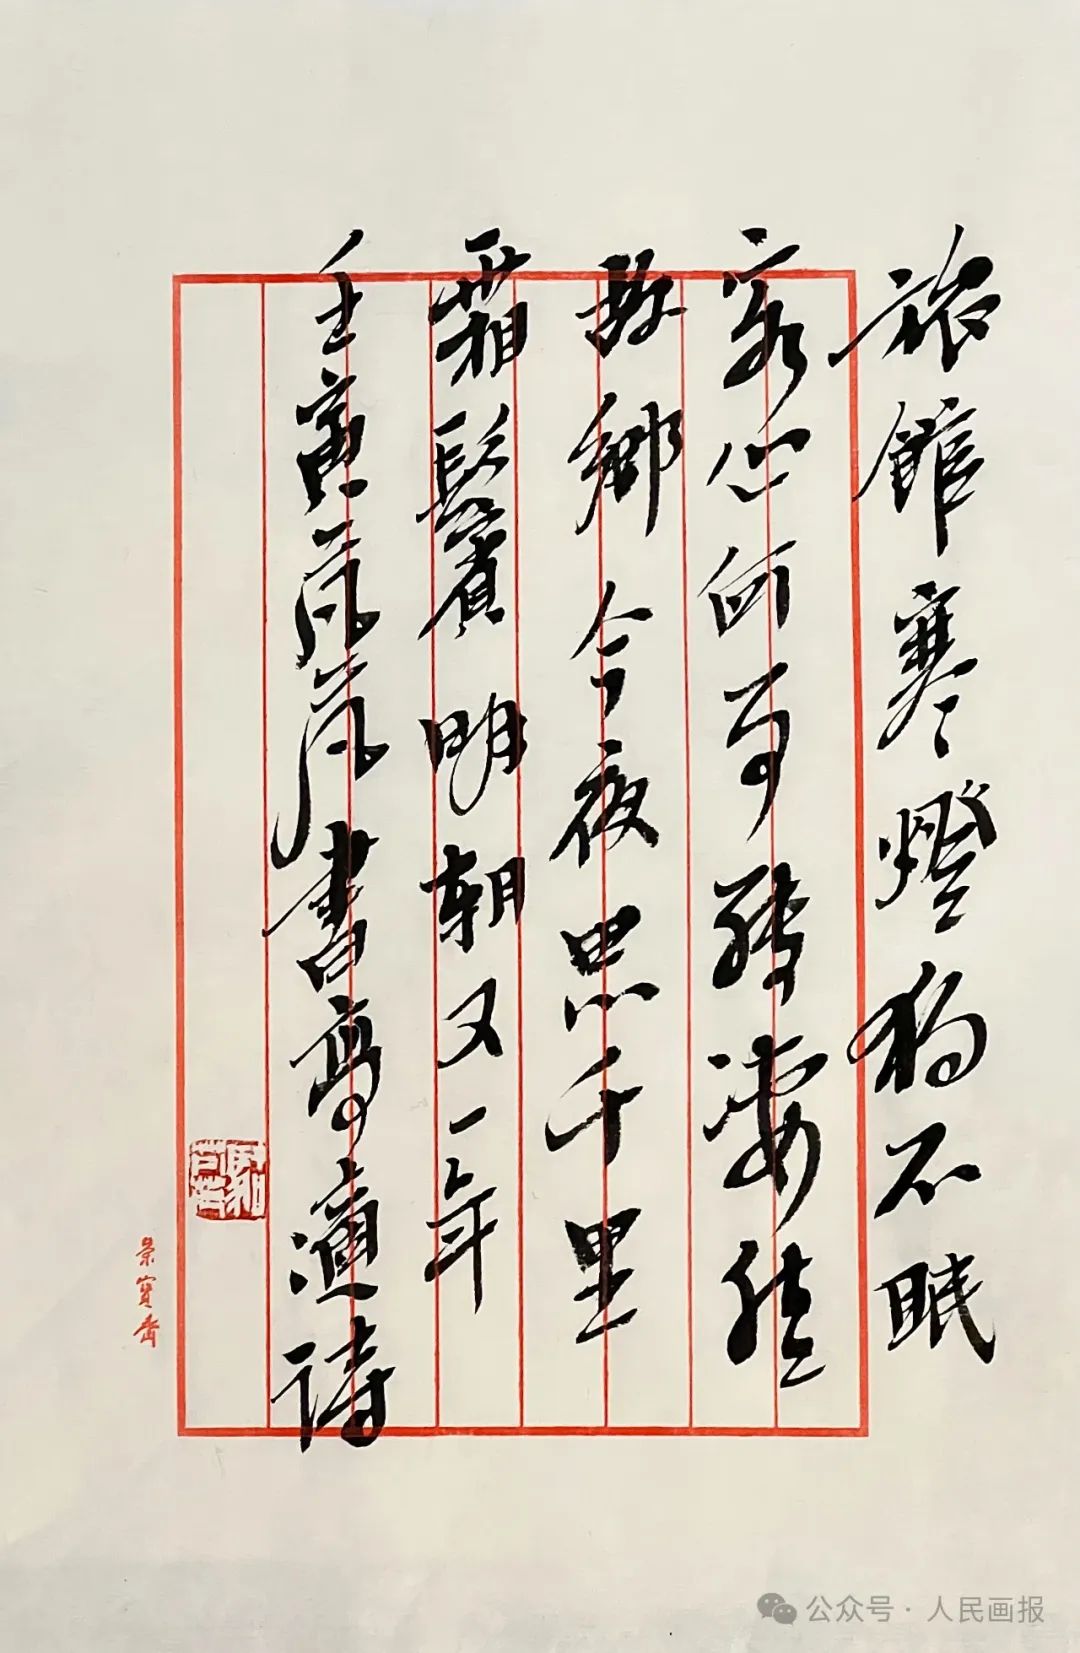 旅館寒燈獨不眠
客心何事轉淒然
故鄉今夜思千里
霜鬢明朝又一年
壬寅 書高適詩
榮寶齋
公众号 · 人民画报